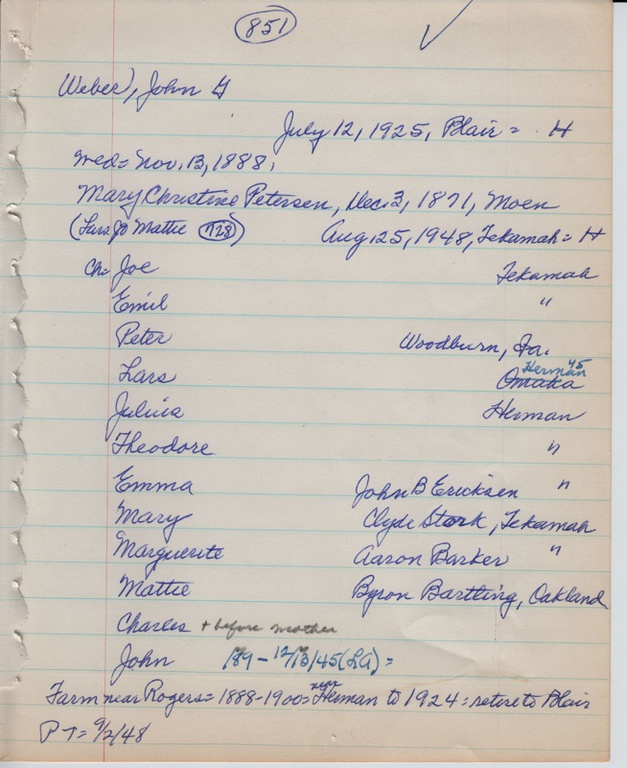 851
Weber, John G
July 12, 1925, Blair = H
Wed = Nov. 13, 1888,
Mary Christine Petersen, Dec. 3, 1871, Moen
(Lars Jo Mattie 728) Aug. 25, 1948, Tekamah = H
Ch = Joe Tekamah
Emil "
Peter Woodburn, Ia.
Lars Omaha Herman 45
Julius Herman
Theodore "
Emma John B Ericksen "
Mary Clyde Stork, Tekamah
Marguerite Aaron Barker "
Mattie Byron Bartling, Oakland
Charles + before mother
John 189 - 12/13/45 (LA) =
Farm near Rogers = 1888-1900 = near Herman to 1924 : retire to Blair
P T = 9/2/48